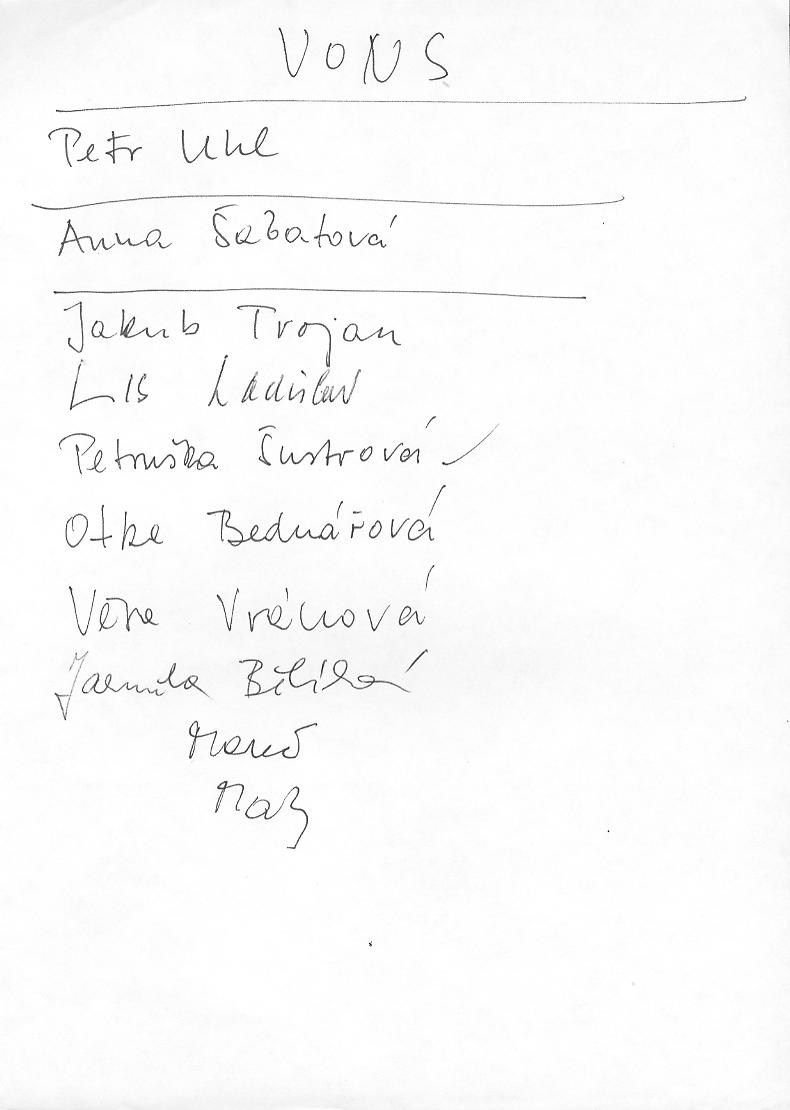 VONS
Petr Uhl
Anna Šabatová
Jakub Trojan
Lis Ladislav
Petruška Šustrová
Otka Bednářová
Věra Vránová
Jarmila Bělíková
Mareš